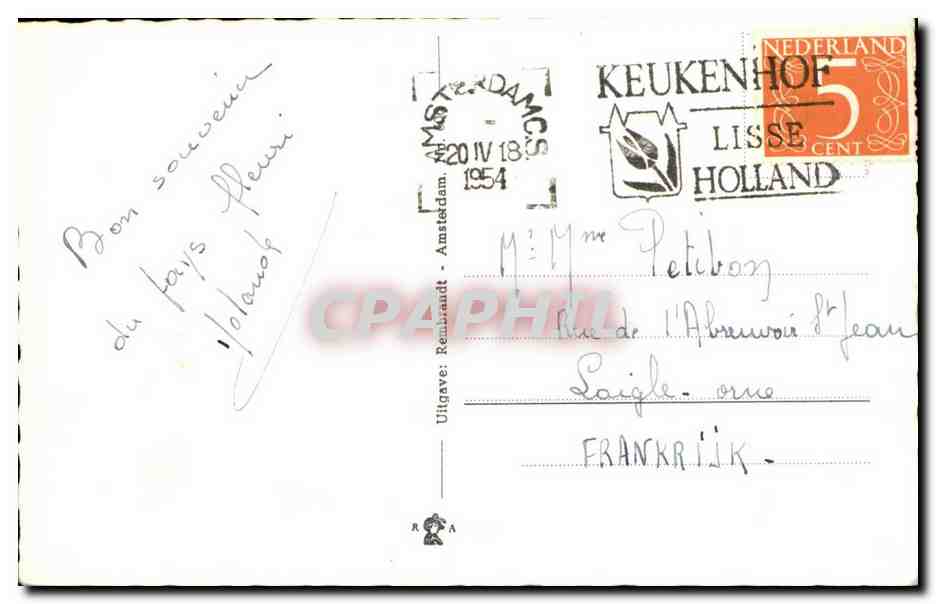 Bon souvenir
du pays fleuri
Yolande
AMSTERDAM C.S
20 IV 18
1954
KEUKENHOF
LISSE
HOLLAND
NEDERLAND
5
CENT
Uitgave: Rembrandt - Amsterdam.
Mr Mme Petibon
Rue de l'Abreuvoir St Jean
Laigle - orne
FRANKRIJK -
CPAPHIL
R A